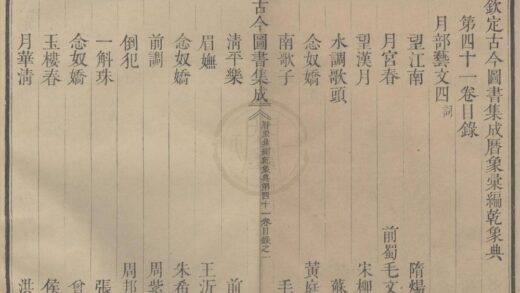 欽定古今圖書集成曆象彙編乾象典
第四十一卷目錄
月部藝文四 詞
望江南 隋煬
月宮春 前蜀毛文
望漢月 宋柳
水調歌頭 蘇
念奴嬌 黃庭
南歌子 毛
古今圖書集成
曆象彙編乾象典第四十一卷目錄之
清平樂 前
眉嫵 王沂
念奴嬌 朱希
前調 周紫
倒犯 周邦
一斛珠 張
念奴嬌
玉樓春 侯
月華清 洪